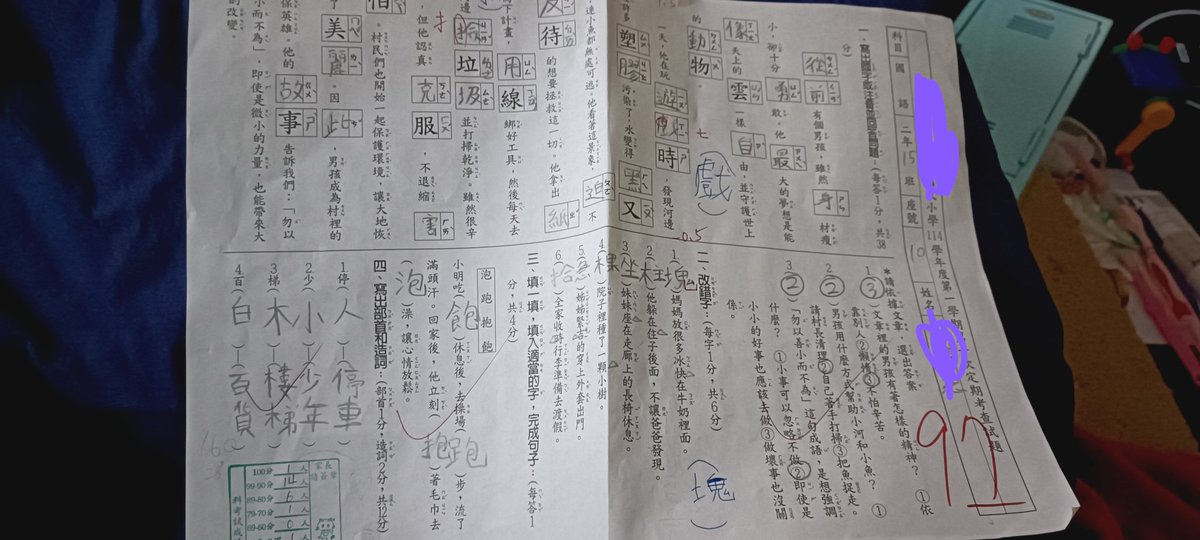 小學114學年度第一學期
定期考查試題
科目 國語 二年15班 座號 10 姓名
92
一、寫出國字或注音並回答問題：(每答1分，共38分)
從前有個男孩，雖然身材瘦
小，卻十分勇敢。他最大的夢想是能
像天上的雲一樣自由，並守護世上
的動物。
天，他在玩遊戲時，發現河邊
許多塑膠汙染了，水變得又
連小魚都無處可逃。他看著這景象，不
待的想要拯救這一切。他拿出紙
下計畫，用線綁好工具，然後每天去
撿垃圾並打掃乾淨。雖然很辛
，但他認真克服，不退縮
村民們也開始一起保護環境，讓大地恢
美麗。因此，男孩成為村裡的
保英雄。他的故事告訴我們：「勿以
小而不為」，即使是微小的力量，也能帶來大
的改變。
戲
*請依據文章，選出答案
1.(③)文章裡的男孩有著怎樣的精神？①依
靠別人②懶惰③不怕辛苦。
2.(②)男孩用什麼方式幫助小河和小魚？①
請村長清理②自己著手打掃③把魚捉走。
3.(②)「勿以善小而不為」這句成語，是想強調
什麼？①小事可以忽略不做②即使是
小小的好事也應該去做③做壞事也沒關
係。
二、改錯字：(每字1分，共6分)
1.(塊)媽媽放很多冰快在牛奶裡面。
(塊)
2.
他躲在在子後面，不讓爸爸發現。
3.(坐)妹妹座在走廊上的長椅休息。
4.(棵)院子裡種了一顆小樹。
5.(急)姊姊緊吉的穿上外套出門。
6.(拾)全家收時行李準備去渡假。
三、填一填，填入適當的字，完成句子：(每答1分，共4分)
泡 跑 抱 飽
小明吃(飽)休息後，去操場(跑)步，流了
滿頭汗。回家後，他立刻(抱)著毛巾去
(泡)澡，讓心情放鬆。
四、寫出部首和造詞：(部首1分，造詞2分，共12分)
1.停(人)—(停車)
2.少(小)—(少年)
3.梯(木)—(樓梯)
4.百(白)—(百貨)
家長請簽章
100分 1人
99-90分 14人
89-80分 6人
79-70分 1人
69-60分 0人